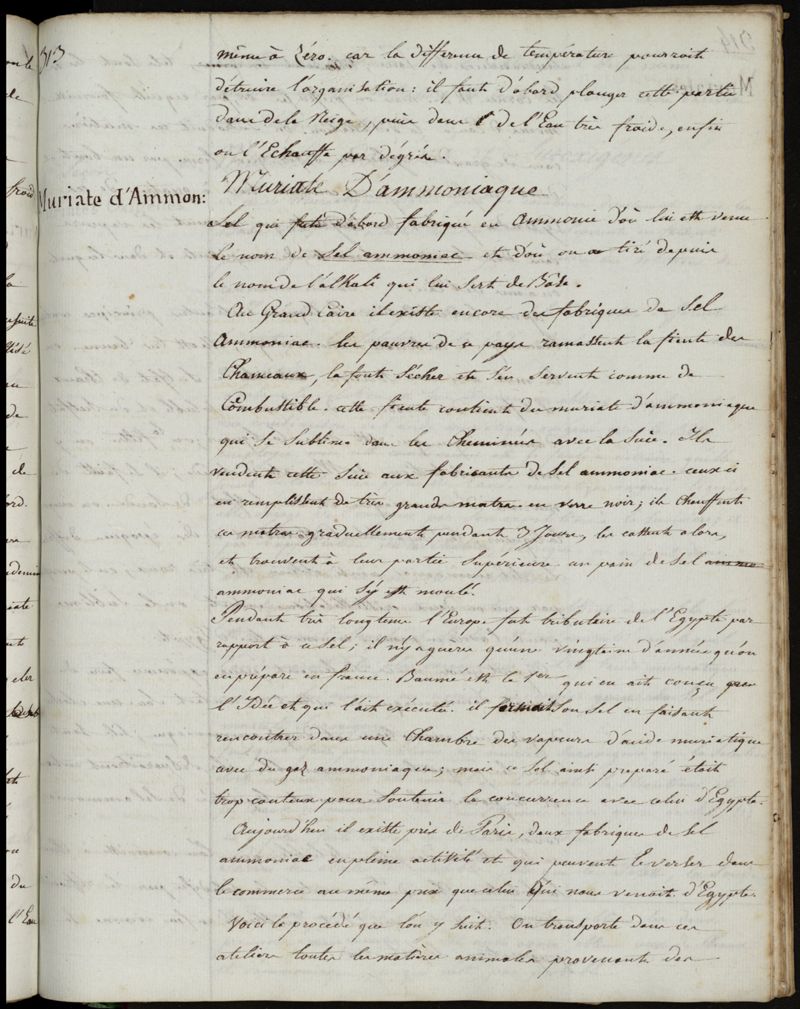 313
même à Zéro. car la différence de température pourroit
détruire l'organisation: il faut d'abord plonger cette partie
dans de la Neige, puis dans de l'Eau très froide, enfin
on l'Echauffe par dégrés.
Muriate d'Ammon:
Muriate D'ammoniaque
Sel qui fut d'abord fabriqué en Ammonie d'où lui est venu
le nom de Sel ammoniac et d'où on a tiré depuis
le nom de l'alkali qui lui sert de Base.
Au Grand Caire il existe encore des fabriques de Sel
Ammoniac. les pauvres de ce pays ramassent la fiente des
Chameaux, la font Sécher et s'en servent comme de
Combustible. cette fiente contient du muriate d'ammoniaque
qui se sublime dans les Cheminées avec la Suie. Ils
vendent cette Suie aux fabricants de Sel ammoniac. ceux ci
en remplissent de très grands matras en verre noir; ils chauffent
ces matras graduellement pendant 3 Jours, les cassent alors,
et trouvent à leur partie Supérieure un pain de Sel ammo
ammoniac qui s'y est moulé.
Pendant très longtems l'Europe fut tributaire de l'Egypte par
rapport à ce Sel; il n'y a guère qu'une vingtaine d'années qu'on
en prépare en france. Baumé est le 1er qui en ait conçu
l'Idée et qui l'ait exécuté. il formait son Sel en faisant
rencontrer dans une Chambre des vapeurs d'acide muriatique
avec du gaz ammoniaque; mais ce Sel ainsi preparé était
trop couteux pour Soutenir la concurrence avec celui d'Egypte.
Aujourd'hui il existe près de Paris, deux fabriques de Sel
ammoniac en pleine activité et qui peuvent le verser dans
le commerce au même prix que celui qui nous venoit d'Egypte.
Voici le procédé que l'on y suit. On transporte dans ces
ateliers toutes les matières animales provenant des